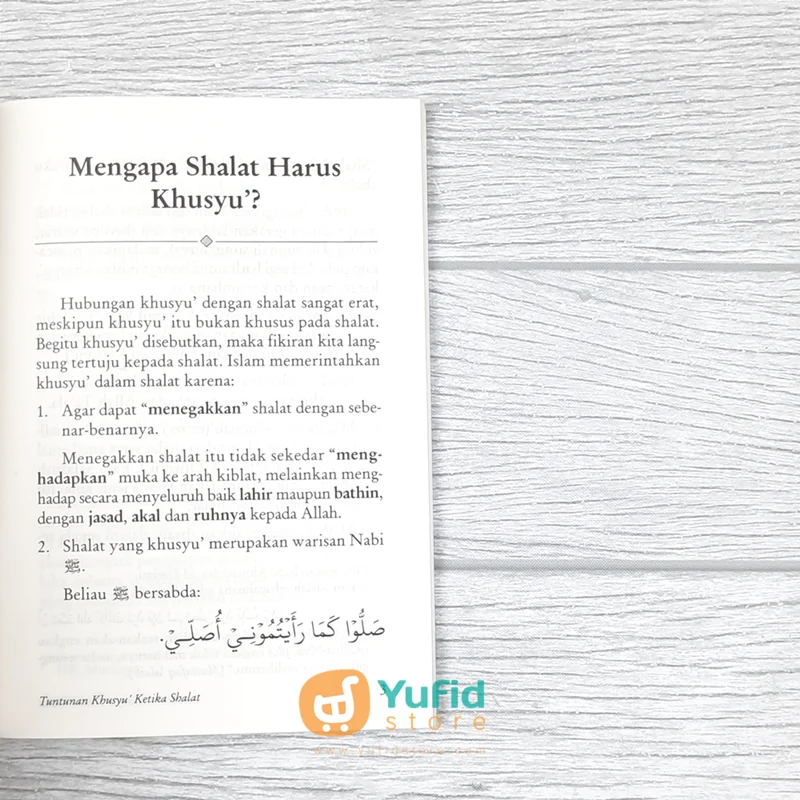 Mengapa Shalat Harus
Khusyu’?
Hubungan khusyu’ dengan shalat sangat erat,
meskipun khusyu’ itu bukan khusus pada shalat.
Begitu khusyu’ disebutkan, maka fikiran kita lang-
sung tertuju kepada shalat. Islam memerintahkan
khusyu’ dalam shalat karena:
1. Agar dapat “menegakkan” shalat dengan sebe-
nar-benarnya.
Menegakkan shalat itu tidak sekedar “meng-
hadapkan” muka ke arah kiblat, melainkan meng-
hadap secara menyeluruh baik lahir maupun bathin,
dengan jasad, akal dan ruhnya kepada Allah.
2. Shalat yang khusyu’ merupakan warisan Nabi
ﷺ.
Beliau ﷺ bersabda:
صَلُّوْا كَمَا رَأَيْتُمُوْنِـيْ أُصَلِّـيْ.
Tuntunan Khusyu’ Ketika Shalat
Yufid
store
www.yufidstore.com